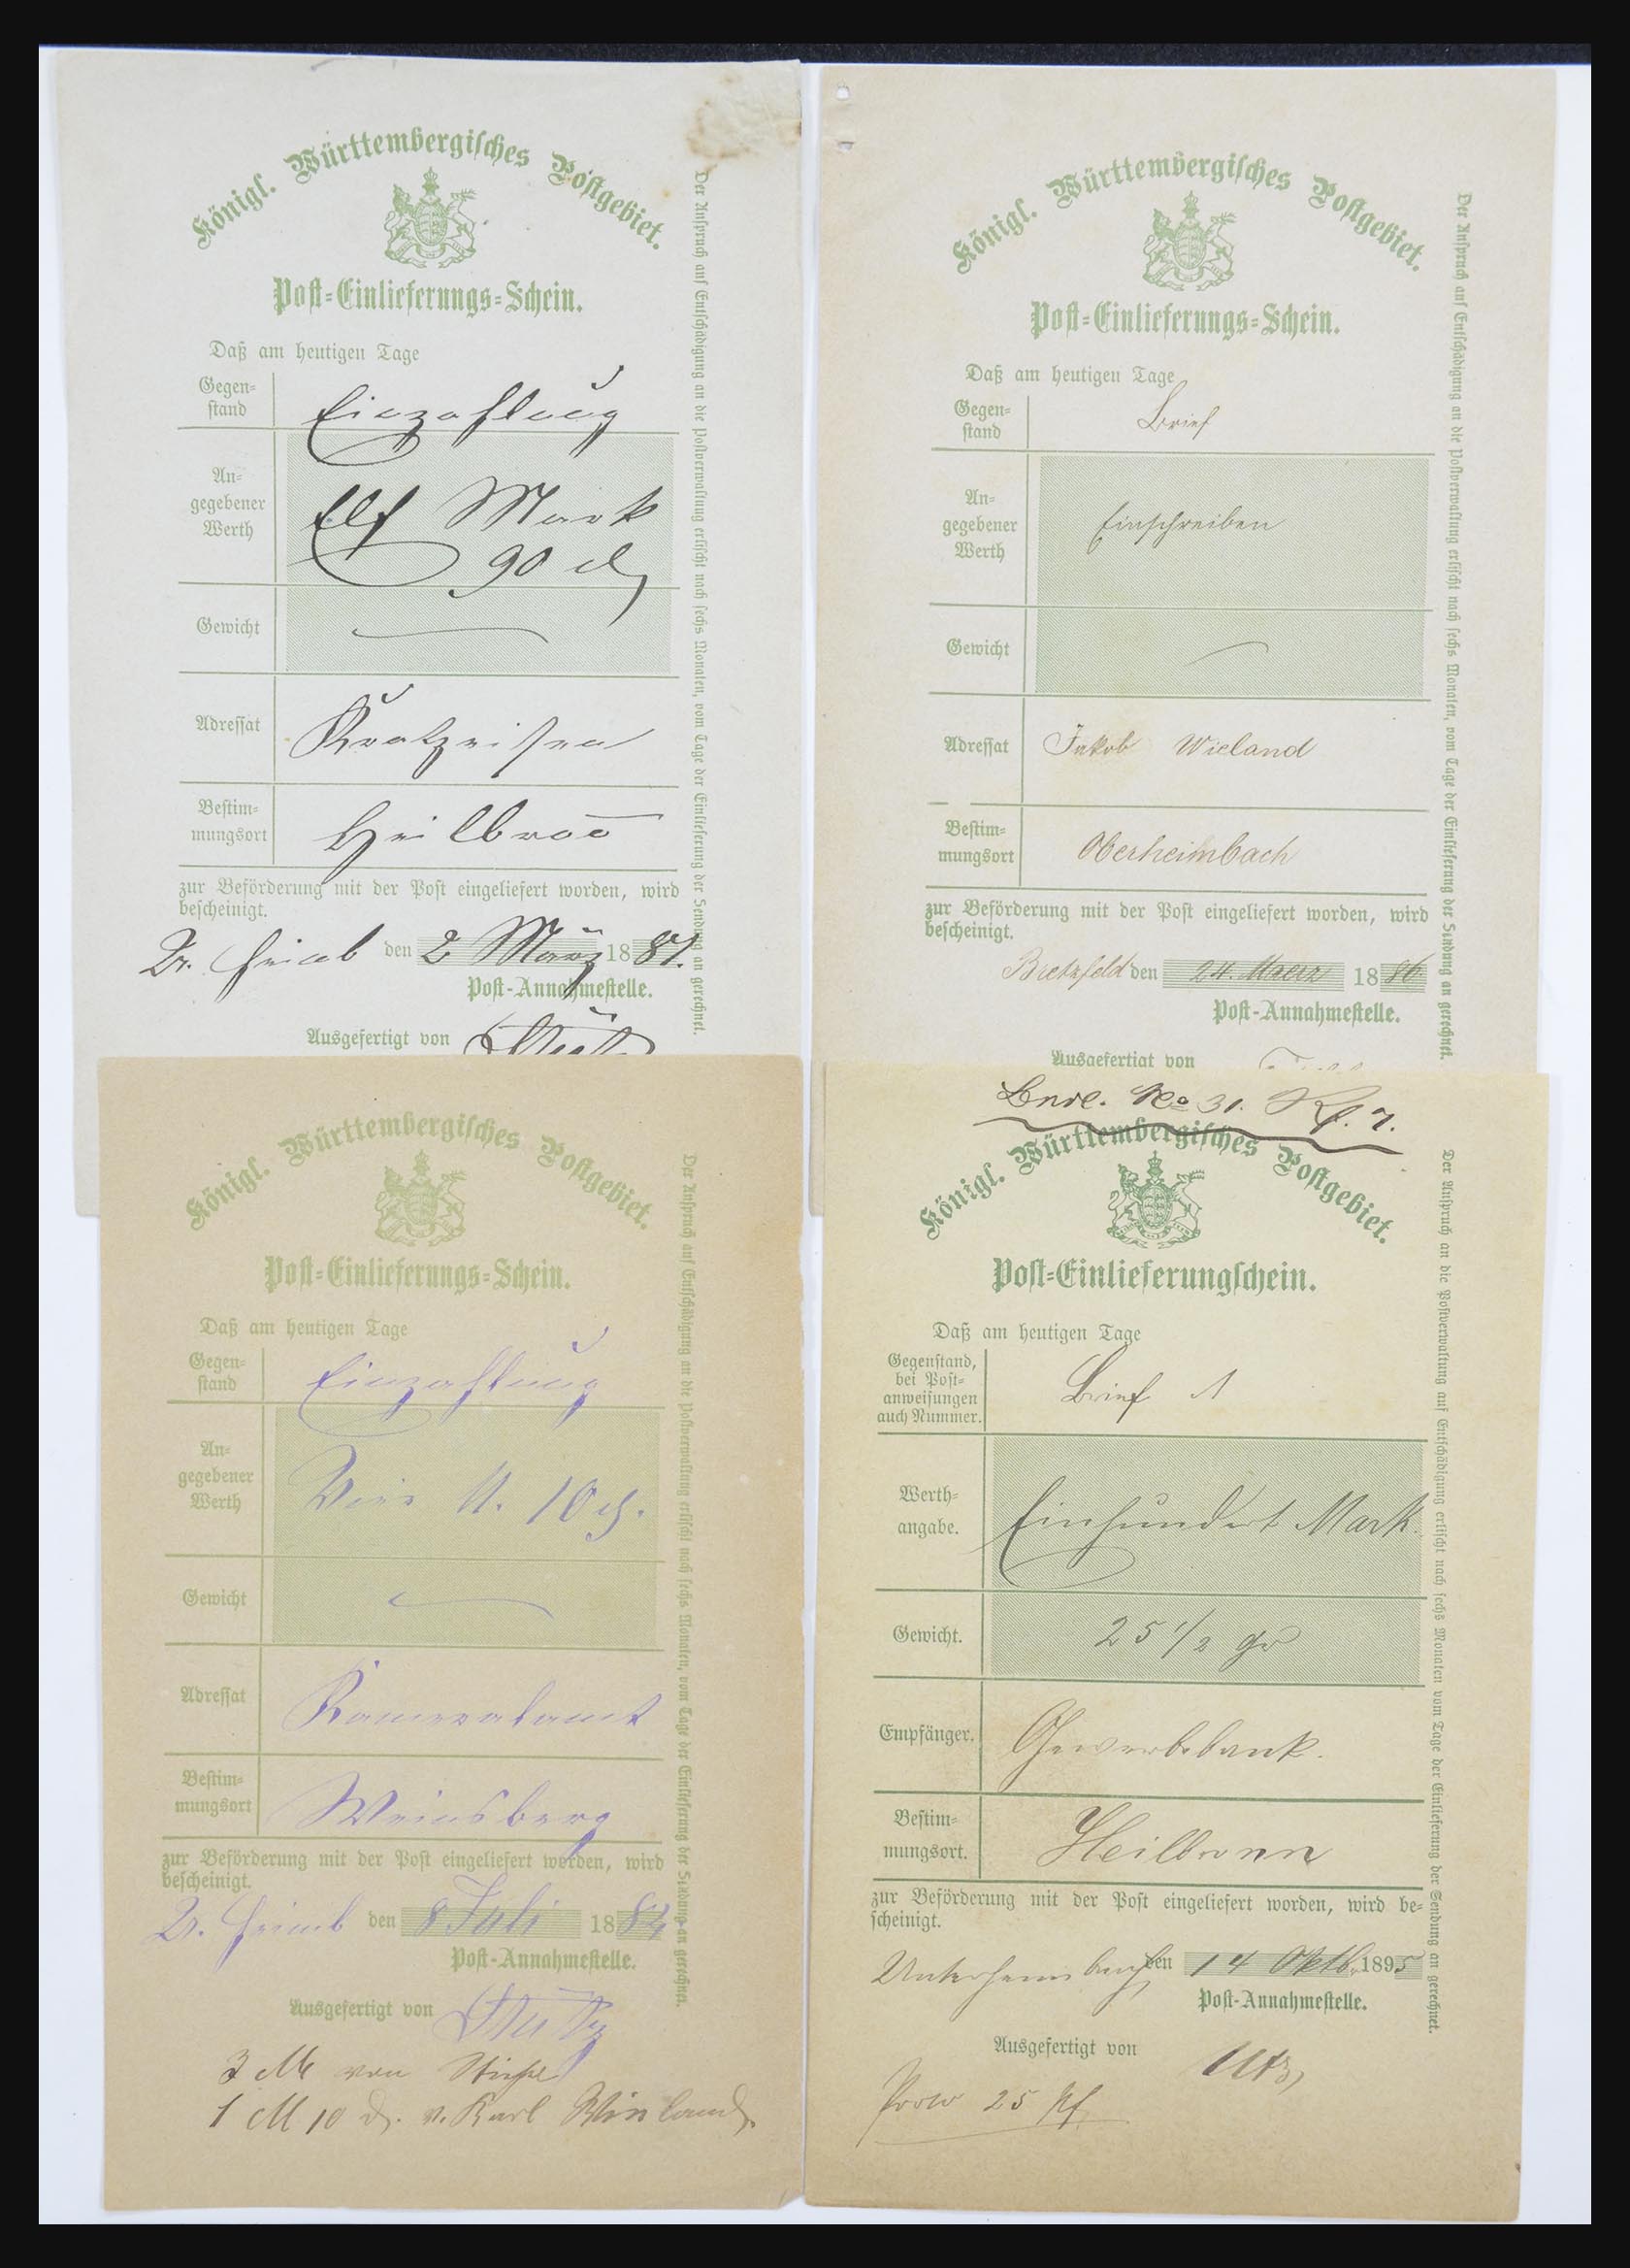 Königl. Württembergisches Postgebiet.
Post-Einlieferungs-Schein.
Daß am heutigen Tage
Gegen-
stand
Einzahlung
An-
gegebener
Werth
Elf Mark
90 d
Gewicht
Adressat
Kratzeisen
Bestim-
mungsort
Heilbron
zur Beförderung mit der Post eingeliefert worden, wird
bescheinigt.
U. Heimb den 2 März 1881.
Post-Annahmestelle.
Ausgefertigt von
Der Anspruch auf Entschädigung an die Postverwaltung erlischt nach sechs Monaten, vom Tage der Einlieferung der Sendung an gerechnet.
Königl. Württembergisches Postgebiet.
Post-Einlieferungs-Schein.
Daß am heutigen Tage
Gegen-
stand
Brief
An-
gegebener
Werth
Einschreiben
Gewicht
Adressat
Jakob Wieland
Bestim-
mungsort
Oberheimbach
zur Beförderung mit der Post eingeliefert worden, wird
bescheinigt.
Bretzfeld den 24. Maerz 1886
Post-Annahmestelle.
Ausgefertigt von
Der Anspruch auf Entschädigung an die Postverwaltung erlischt nach sechs Monaten, vom Tage der Einlieferung der Sendung an gerechnet.
Königl. Württembergisches Postgebiet.
Post-Einlieferungs-Schein.
Daß am heutigen Tage
Gegen-
stand
Einzahlung
An-
gegebener
Werth
Vier M. 10 d.
Gewicht
Adressat
Kameralamt
Bestim-
mungsort
Weinsberg
zur Beförderung mit der Post eingeliefert worden, wird
bescheinigt.
U. Heimb den 8 Juli 188
Post-Annahmestelle.
Ausgefertigt von
3 M von
1 M 10 d. v. Karl Wieland
Der Anspruch auf Entschädigung an die Postverwaltung erlischt nach sechs Monaten, vom Tage der Einlieferung der Sendung an gerechnet.
No 31.
Königl. Württembergisches Postgebiet.
Post-Einlieferungschein.
Daß am heutigen Tage
Gegenstand,
bei Post-
anweisungen
auch Nummer.
Brief 1
Werth-
angabe.
Einhundert Mark.
Gewicht.
25 1/2 gr
Empfänger.
Gewerbebank.
Bestim-
mungsort.
Heilbronn
zur Beförderung mit der Post eingeliefert worden, wird be-
scheinigt.
Unterheimbach den 14 Oktb. 1895
Post-Annahmestelle.
Ausgefertigt von Utz
Porto 25 Pf.
Der Anspruch an die Postverwaltung auf Entschädigung erlischt nach sechs Monaten vom Tage der Einlieferung der Sendung an gerechnet.